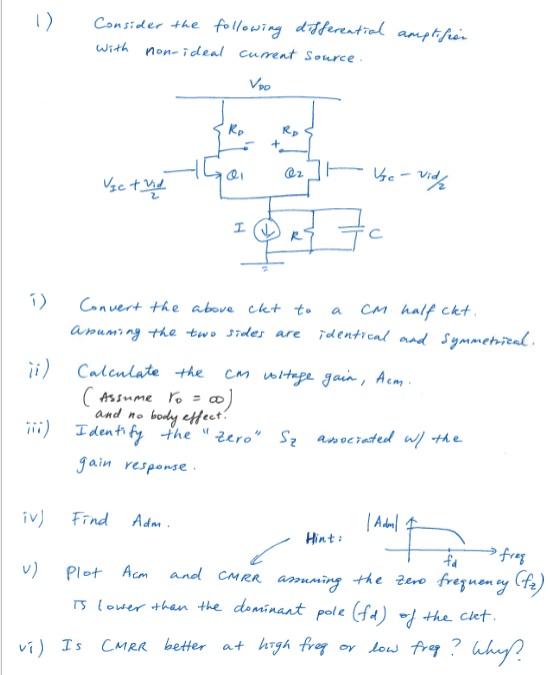 1) Consider the following differential amplifier
with non-ideal current source.
VDD
RD RD
- +
VIC + Vid/2 Q1 Q2 VIC - Vid/2
I R C
i) Convert the above ckt to a CM half ckt.
assuming the two sides are identical and symmetrical.
ii) Calculate the CM voltage gain, Acm.
(Assume ro = ∞)
and no body effect.
iii) Identify the "zero" Sz associated w/ the
gain response.
iv) Find Adm.
Hint: |Adm| fd freq
v) Plot Acm and CMRR assuming the zero frequency (fz)
is lower than the dominant pole (fd) of the ckt.
vi) Is CMRR better at high freq or low freq? Why?